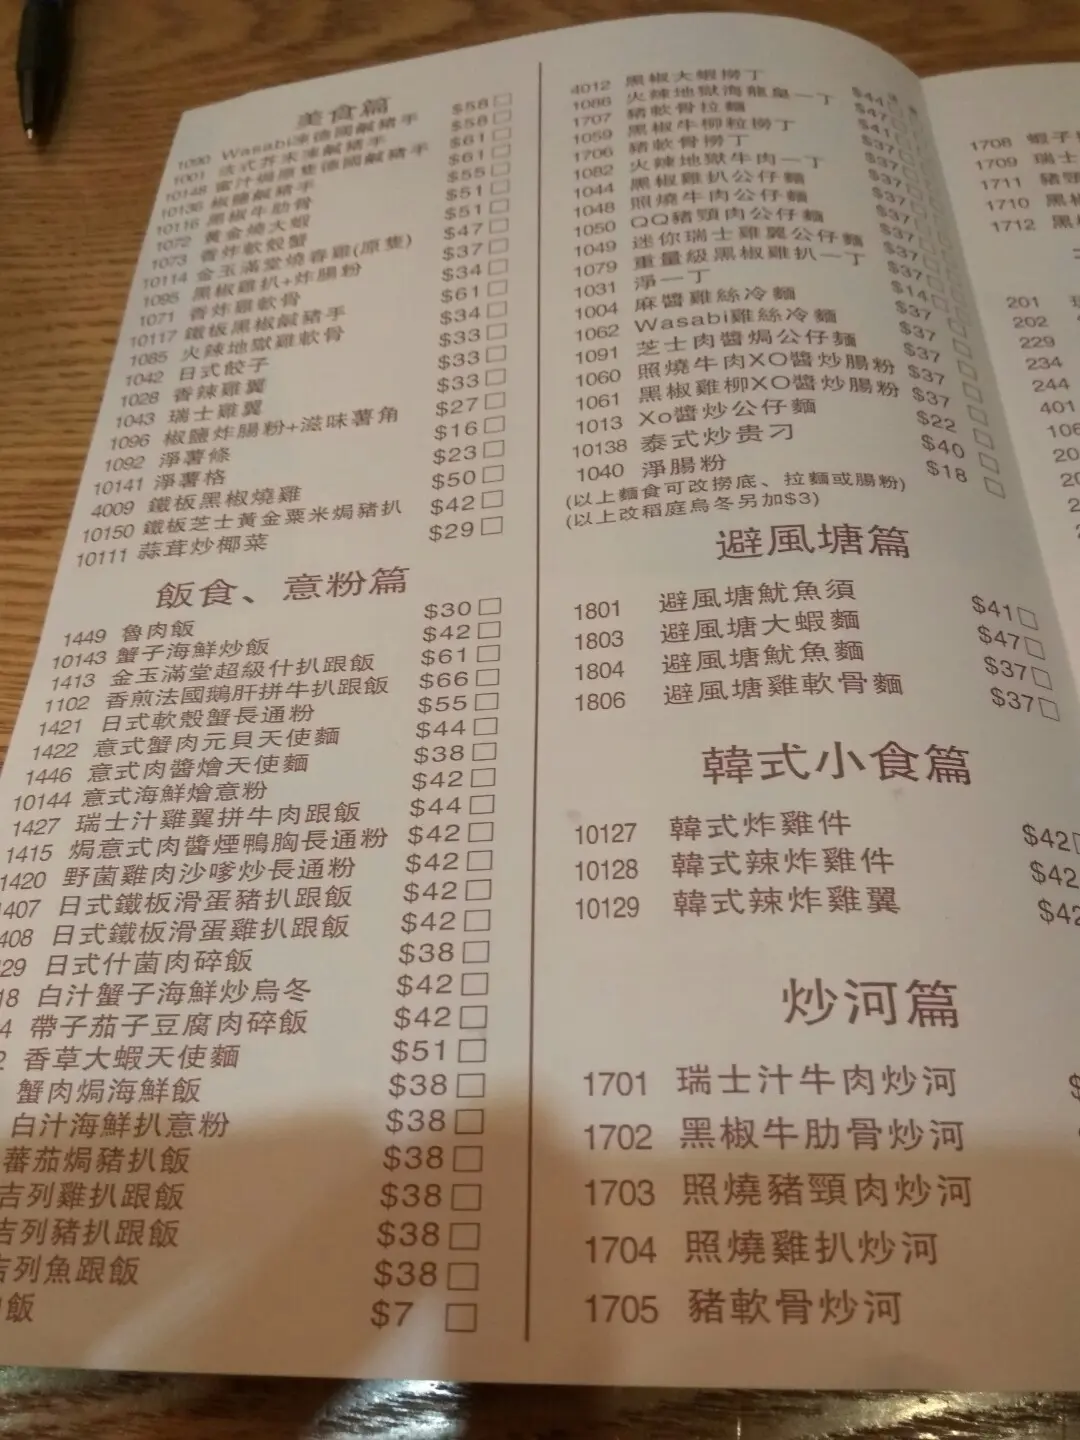 美食篇
1090 Wasabi凍德國鹹豬手 $58
1001 法式芥末凍鹹豬手 $58
10148 蜜汁焗原隻德國鹹豬手 $61
10136 椒鹽鹹豬手 $61
10116 黑椒牛肋骨 $55
1072 黃金燒大蝦 $51
1073 香炸軟殼蟹 $51
10114 金玉滿堂燒春雞(原隻) $47
1095 黑椒雞扒+炸腸粉 $37
1071 香炸雞軟骨 $34
10117 鐵板黑椒鹹豬手 $61
1085 火辣地獄雞軟骨 $34
1042 日式餃子 $33
1028 香辣雞翼 $33
1043 瑞士雞翼 $33
1096 椒鹽炸腸粉+滋味薯角 $27
1092 淨薯條 $16
10141 淨薯格 $23
4009 鐵板黑椒燒雞 $50
10150 鐵板芝士黃金粟米焗豬扒 $42
10111 蒜茸炒椰菜 $29
飯食、意粉篇
1449 魯肉飯 $30
10143 蟹子海鮮炒飯 $42
1413 金玉滿堂超級什扒跟飯 $61
1102 香煎法國鵝肝拼牛扒跟飯 $66
1421 日式軟殼蟹長通粉 $55
1422 意式蟹肉元貝天使麵 $44
1446 意式肉醬燴天使麵 $38
10144 意式海鮮燴意粉 $42
1427 瑞士汁雞翼拼牛肉跟飯 $44
1415 焗意式肉醬煙鴨胸長通粉 $42
1420 野菌雞肉沙嗲炒長通粉 $42
407 日式鐵板滑蛋豬扒跟飯 $42
408 日式鐵板滑蛋雞扒跟飯 $42
29 日式什菌肉碎飯 $38
18 白汁蟹子海鮮炒烏冬 $42
4 帶子茄子豆腐肉碎飯 $42
2 香草大蝦天使麵 $51
蟹肉焗海鮮飯 $38
白汁海鮮扒意粉 $38
蕃茄焗豬扒飯 $38
吉列雞扒跟飯 $38
吉列豬扒跟飯 $38
吉列魚跟飯 $38
飯 $7
4012 黑椒大蝦撈丁
1086 火辣地獄海龍皇一丁 $44
1707 豬軟骨拉麵 $47
1059 黑椒牛柳粒撈丁 $41
1706 豬軟骨撈丁 $37
1082 火辣地獄牛肉一丁 $37
1044 黑椒雞扒公仔麵 $37
1048 照燒牛肉公仔麵 $37
1050 QQ豬頸肉公仔麵 $37
1049 迷你瑞士雞翼公仔麵 $37
1079 重量級黑椒雞扒一丁 $37
1031 淨一丁 $14
1004 麻醬雞絲冷麵 $37
1062 Wasabi雞絲冷麵 $37
1091 芝士肉醬焗公仔麵 $37
1060 照燒牛肉XO醬炒腸粉 $37
1061 黑椒雞柳XO醬炒腸粉 $37
1013 Xo醬炒公仔麵 $22
10138 泰式炒贵刁 $40
1040 淨腸粉 $18
(以上麵食可改撈底、拉麵或腸粉)
(以上改稻庭烏冬另加$3)
避風塘篇
1801 避風塘魷魚須 $41
1803 避風塘大蝦麵 $47
1804 避風塘魷魚麵 $37
1806 避風塘雞軟骨麵 $37
韓式小食篇
10127 韓式炸雞件 $42
10128 韓式辣炸雞件 $42
10129 韓式辣炸雞翼 $42
炒河篇
1701 瑞士汁牛肉炒河 $
1702 黑椒牛肋骨炒河
1703 照燒豬頸肉炒河
1704 照燒雞扒炒河
1705 豬軟骨炒河
1708 蝦子
1709 瑞士
1711 豬頸
1710 黑椒
1712 黑
201
202
229
234
244
401